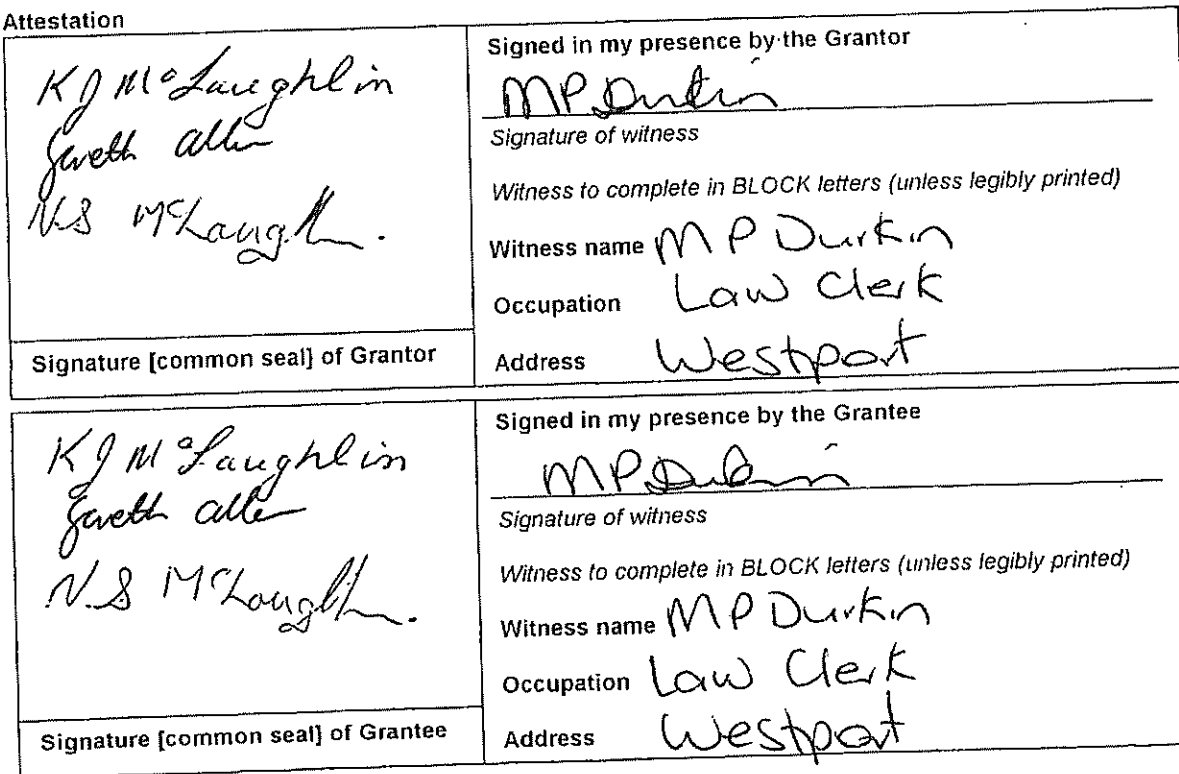 Attestation
KJ McLaughlin
Gareth Allen
N.S McLaughlin.
Signature [common seal] of Grantor
Signed in my presence by the Grantor
MP Durkin
Signature of witness
Witness to complete in BLOCK letters (unless legibly printed)
Witness name MP Durkin
Occupation Law Clerk
Address Westport
KJ McLaughlin
Gareth Allen
N.S McLaughlin.
Signature [common seal] of Grantee
Signed in my presence by the Grantee
MP Durkin
Signature of witness
Witness to complete in BLOCK letters (unless legibly printed)
Witness name MP Durkin
Occupation Law Clerk
Address Westport